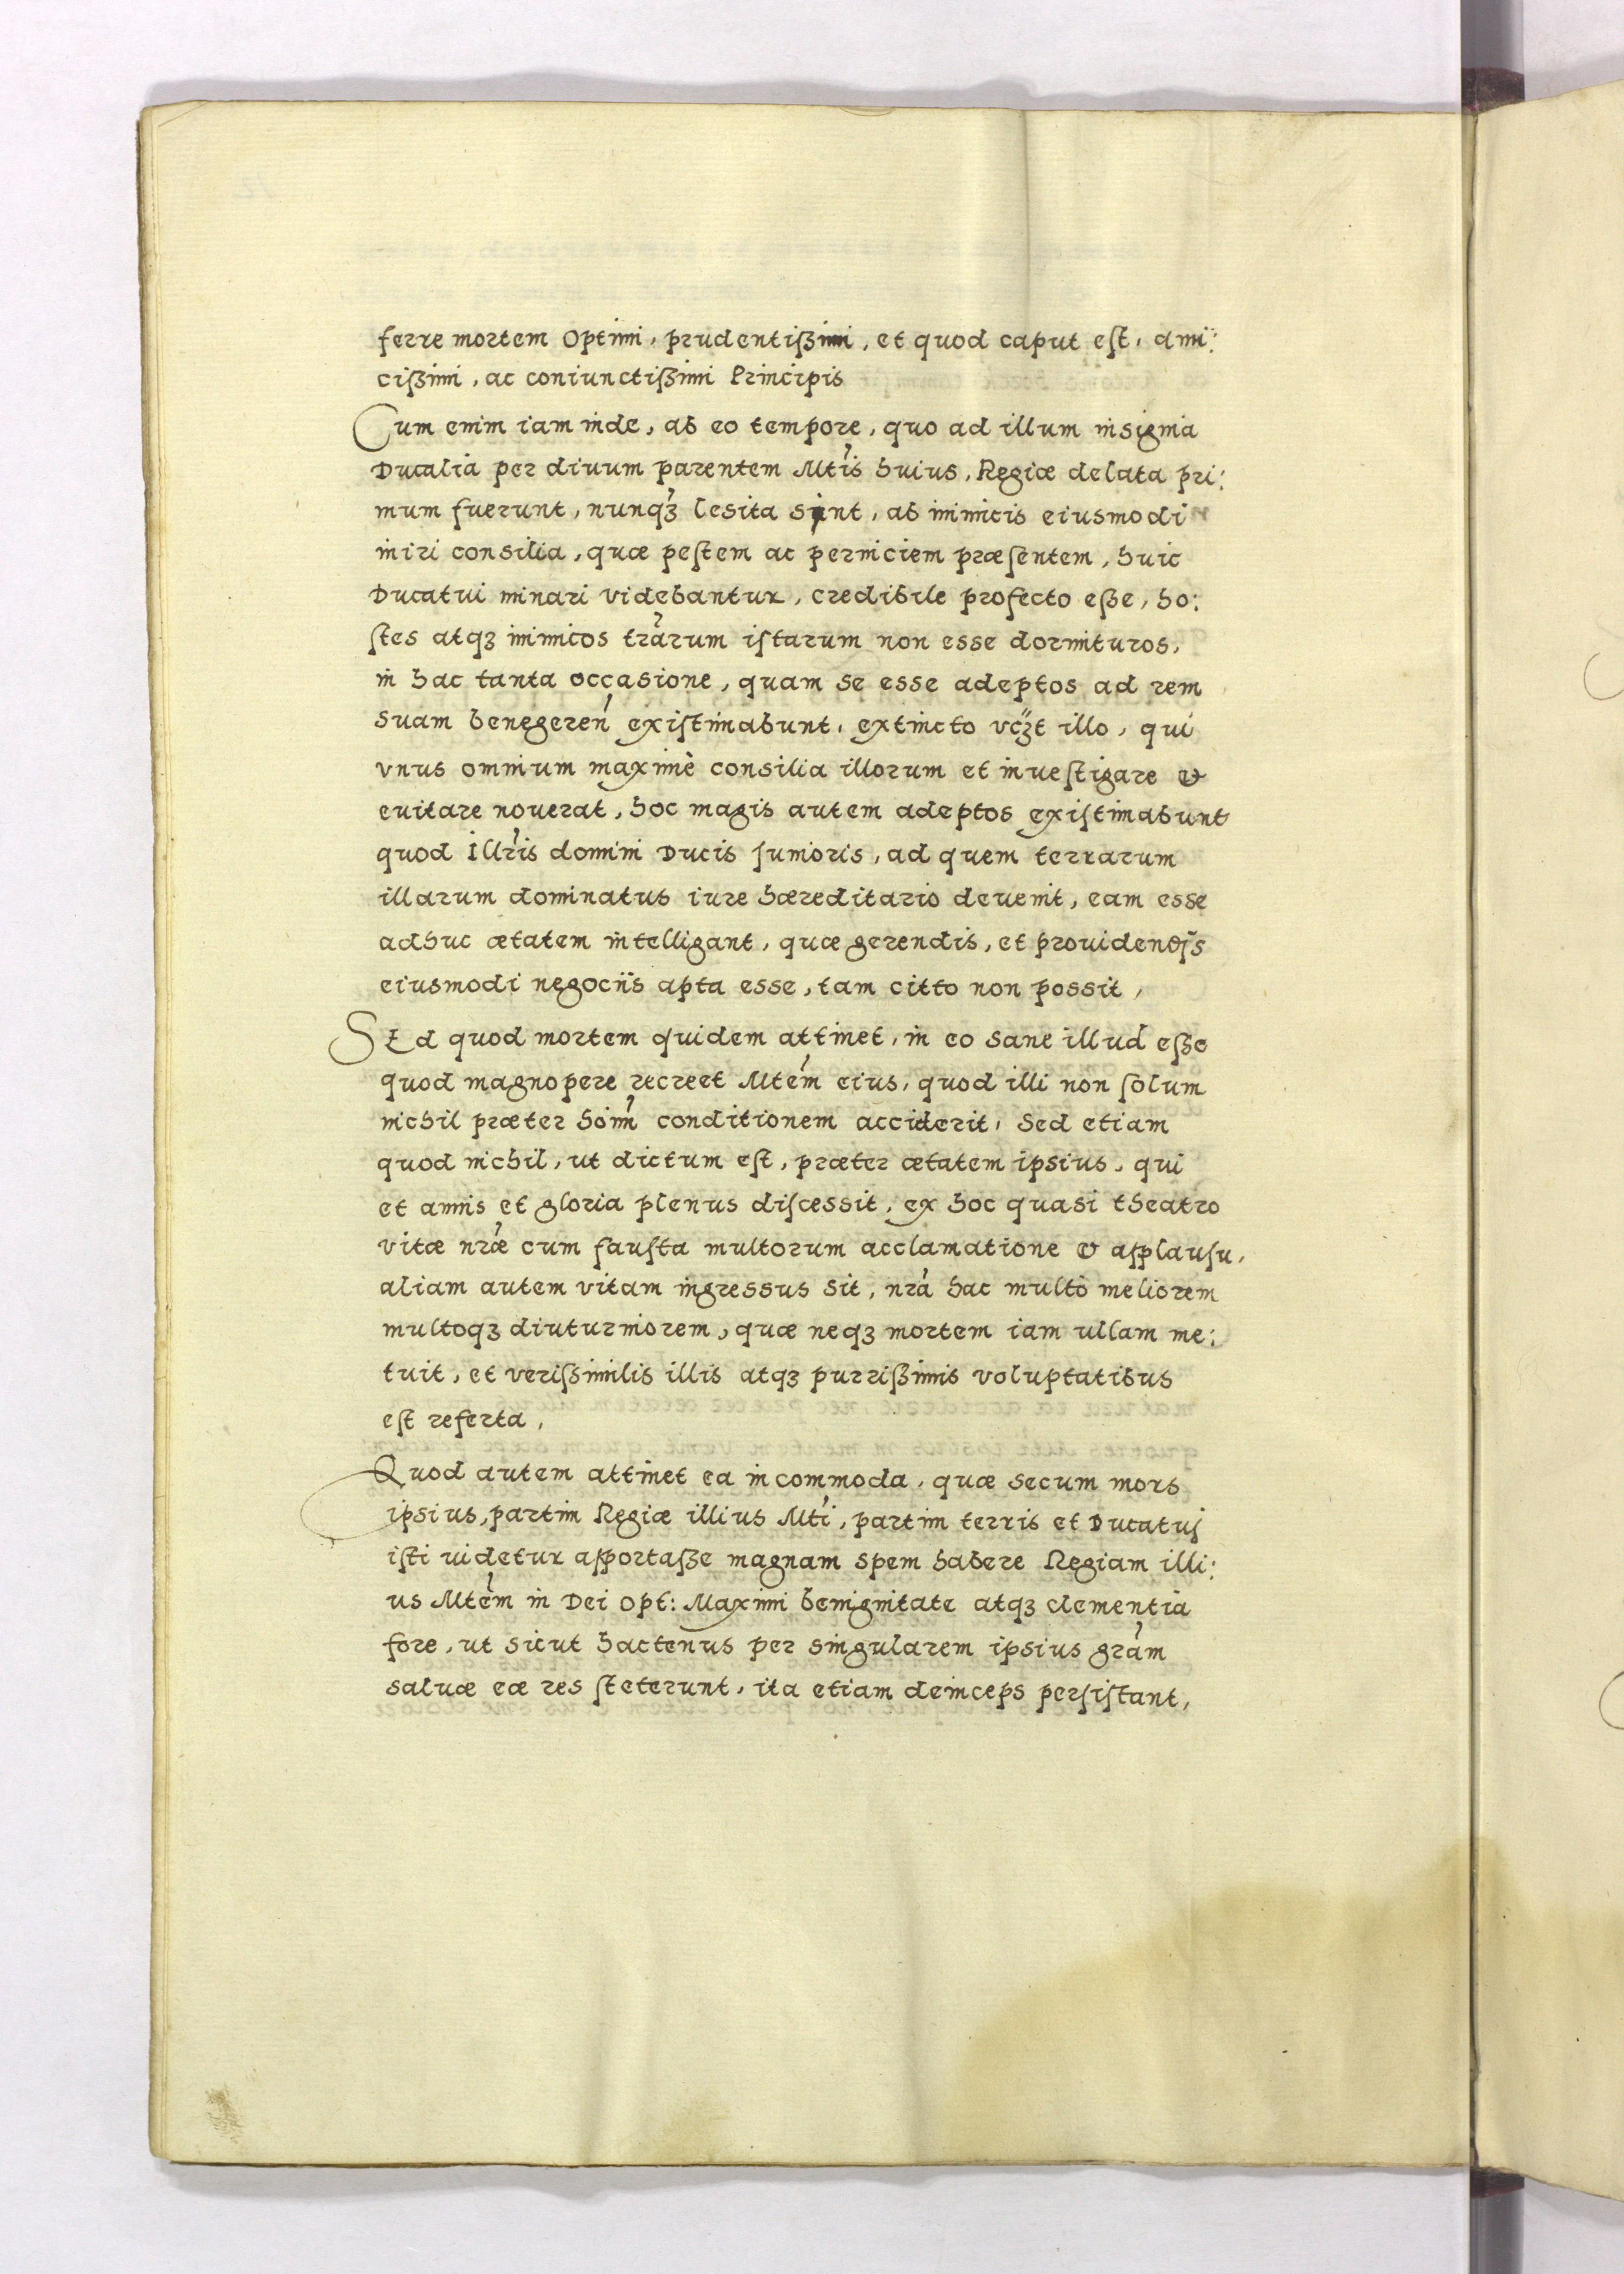 ferre mortem Optimi, prudentißimi, et quod caput est, ami:
cißimi, ac coniunctißimi Principis
Cum enim iam inde, ab eo tempore, quo ad illum insignia
Ducalia per diuum parentem Mtis huius, Regiæ delata pri:
mum fuerunt, nunqȝ lesita sint, ab inimicis eiusmodi
iniri consilia, quæ pestem ac perniciem præsentem, huic
Ducatui minari videbantur, credibile profecto eße, ho:
stes atqȝ inimicos trarum istarum non esse dormituros,
in hac tanta occasione, quam se esse adeptos ad rem
suam benegeren existimabunt, extincto vȝt illo, qui
vnus omnium maximè consilia illorum et inuestigare &
euitare nouerat, hoc magis autem adeptos existimabunt
quod Illris domini Ducis Junioris, ad quem terrarum
illarum dominatus iure hæreditario deuenit, eam esse
adhuc ætatem intelligant, quæ gerendis, et prouidendis
eiusmodi negociis apta esse, tam citto non possit,
SEd quod mortem quidem attinet, in eo sane illud eße
quod magnopere recreet Mtem eius, quod illi non solum
nichil præter hoim conditionem acciderit, Sed etiam
quod nichil, ut dictum est, præter ætatem ipsius, qui
et annis et gloria plenus discessit, ex hoc quasi theatro
vitæ nræ cum fausta multorum acclamatione & applausu,
aliam autem vitam ingressus sit, nra hac multò meliorem
multoqȝ diuturniorem, quæ neqȝ mortem iam ullam me:
tuit, et verissimilis illis atqȝ purrißimis voluptatibus
est referta,
Quod autem attinet ea incommoda, quæ secum mors
ipsius, partim Regiæ illius Mti, partim terris et Ducatuj
isti uidetur apportaße magnam spem habere Regiam illi:
us Mtem in Dei Opt: Maximi benignitate atqȝ clementia
fore, ut sicut hactenus per singularem ipsius gram
saluæ eæ res steterunt, ita etiam deinceps persistant,